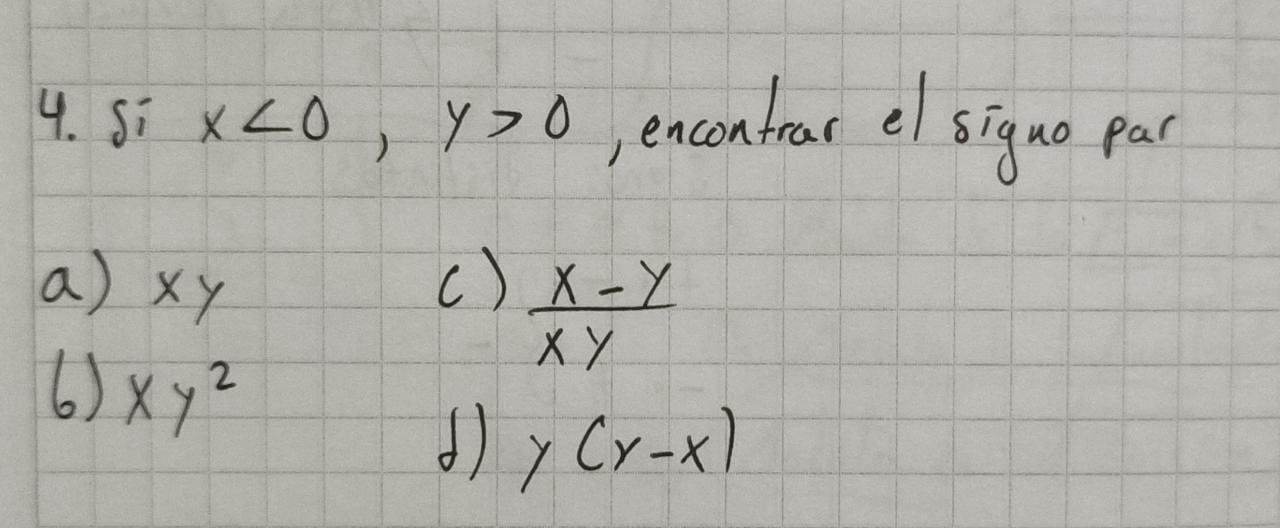 4. Si x < 0 , y > 0 , encontrar el signo par
a) xy
b) xy²
c) x - y
xy
d) y (y - x)